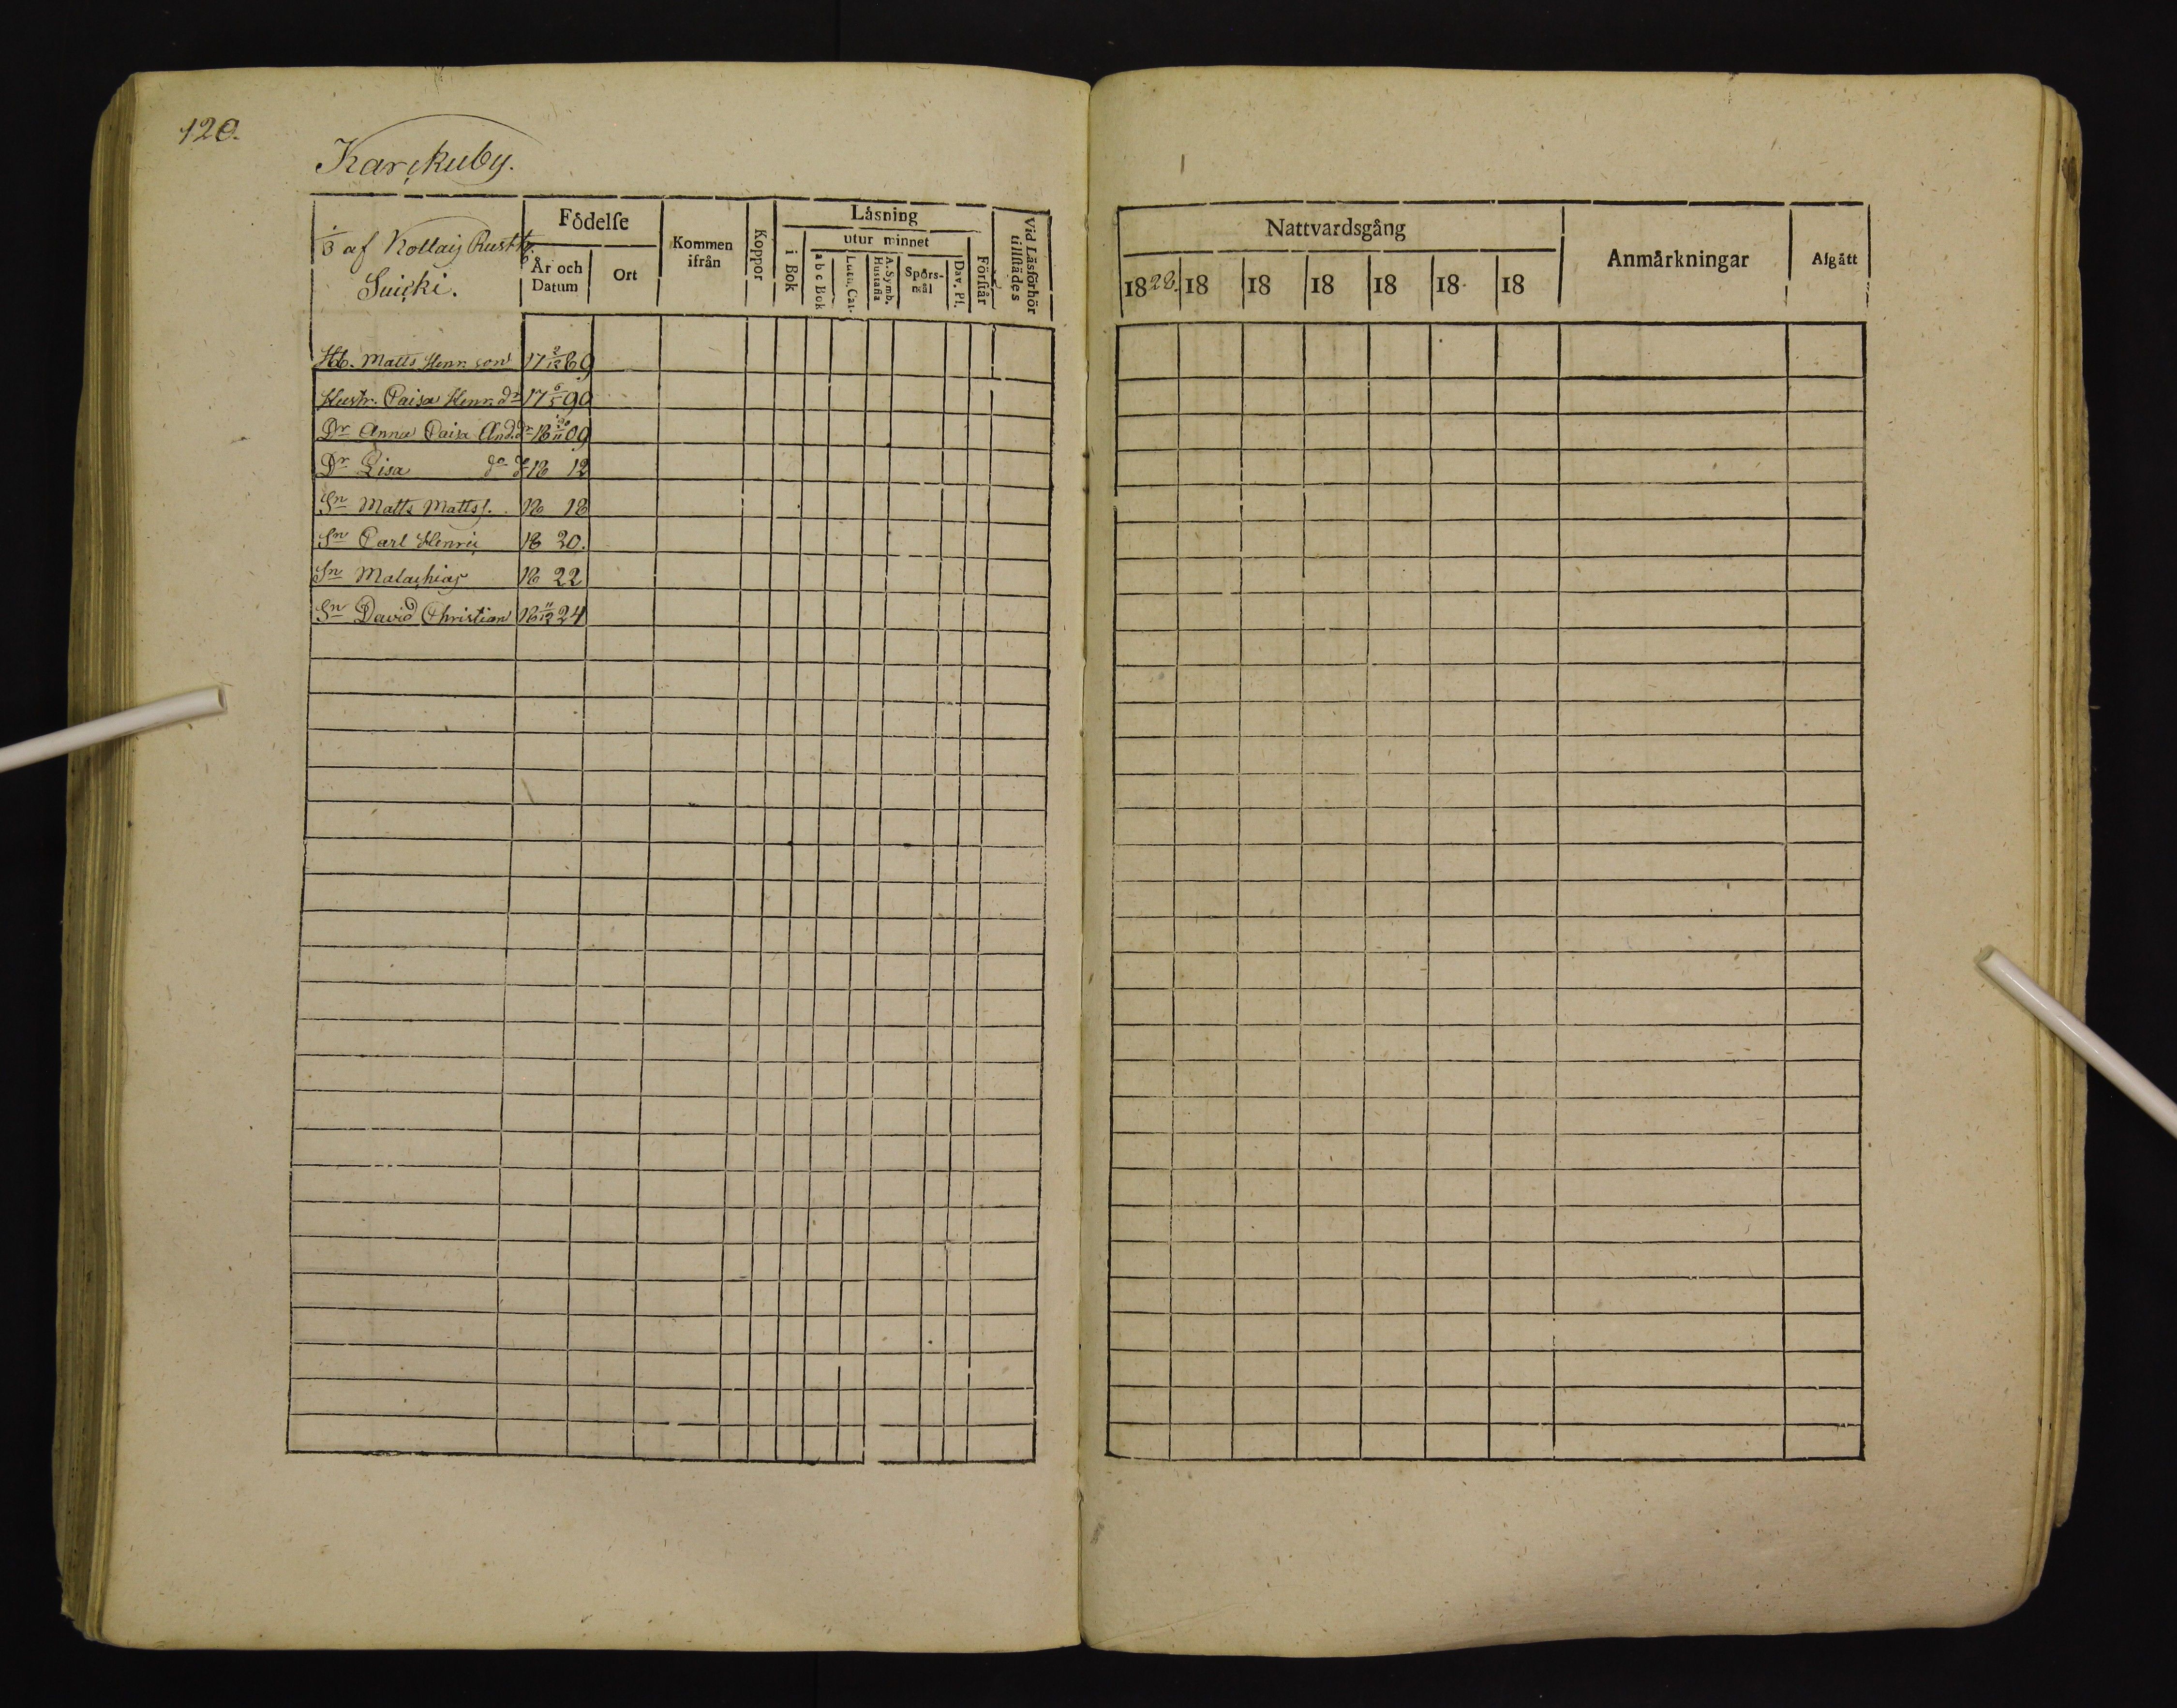 120.
Karckuby.
1/3 af Kollais Rusth.
Suicki.
Fôdelſe
År och Datum
Ort
Kommen ifrån
Koppor
Låsning
i Bok
utur minnet
a b c Bok
A. Symb. Huſtafla
Spôrs-mål
Dav. Pſ.
Förſtår
Vid Läsförhör tillſtädes
Nattvardsgång
1828. 18 18 18 18 18 18
Anmårkningar
Afgått
Hb. Matts Henr. son 17 2/12 89
Hustr. Caisa Henr. dr 17 6/5 90
Dr Anna Caisa And. dr 18 30/11 09
Dr Lisa do dr 18 12
Sn Matts Mattss. 18 18
Sn Carl Henric 18 20.
Sn Malachias 18 22
Sn David Christian 18 11/12 24